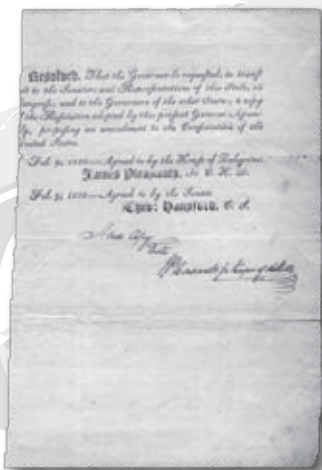 Resolved, That the Governor be requested, to transmit
to the Senators and Representatives of this State, in
Congress, and to the Governors of the other States, a copy
of the Resolution adopted by this present General Assem-
bly, proposing an amendment to the Constitution of the
United States.
Feb. 9, Agreed to by the House of Delegates.
James Pleasants, C. H. D.
Feb. 9, Agreed to by the Senate
Theo: Hansford, C. S.
A true Copy
Teste